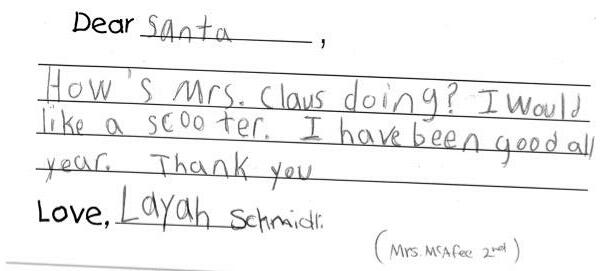 Dear Santa,
How's Mrs. Claus doing? I would
like a scooter. I have been good all
year. Thank you
Love, Layah Schmidt
(Mrs. McAfee 2nd)